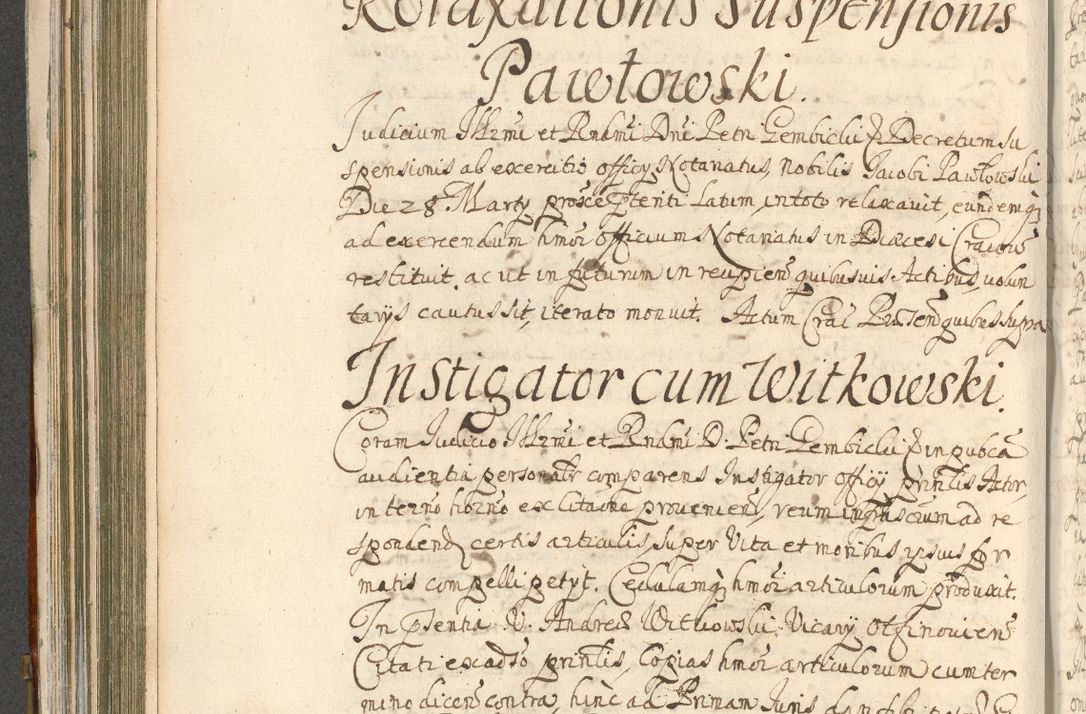 Relaxationis Suspensionis
Pawłowski.
Judicium Illrmi et Rndmi Dni Petri Gembicki &c Decretum Su
spensionis ab exercitio officy Notariatus, nobilis Jacobi Pawłowski
Die 28 Marty prox: Pterti Latum, in toto relaxavit, eundemq;
ad exercendum hmoi officium Notariatus in Diæcesi Cracovien
restituit, ac ut in futurum in recipien quibusuis Actibus, volun
tarys cautus sit, iterato monuit. Actum Crac Præsen quibus supra
Instigator cum Witkowski.
Coram Judicio Illrmi et Rndmi D. Petri Gembicki &c in pubca
audientia personalr comparens Instigator officy prnlis Actor,
in termo horno ex citaone provenien, reum infrascrum ad re
spondend certis articulis, super Vita et moribus ipsius for
matis compelli petyt. Cedulamq; hmoi articulorum produxit.
In Pſentia V. Andreæ Witkowski, Vicary Otfinovien
Citati ex adso prnlis, Copias hmoi articulorum cum ter
mino dicen contra, hinc ad Primam Juris